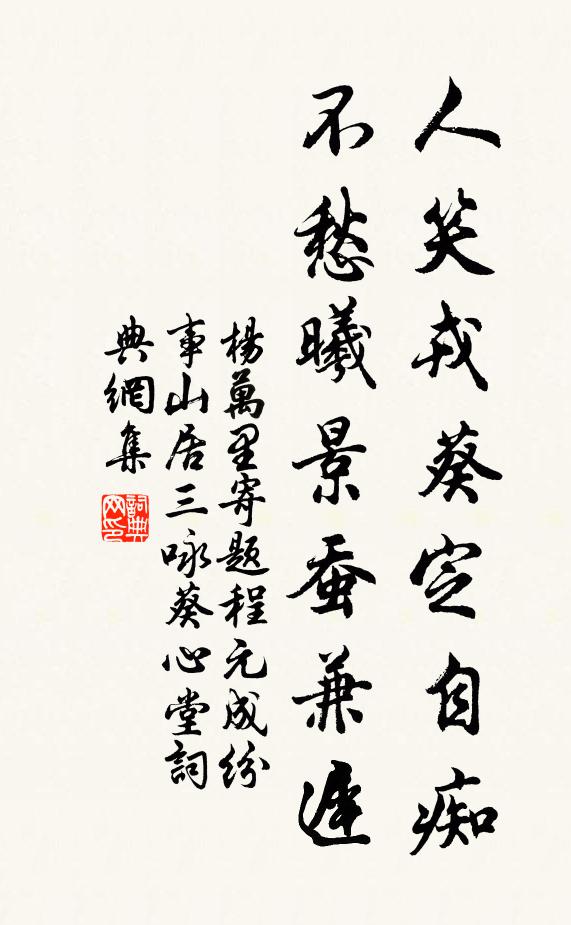 人笑戎葵定自痴
不愁曦景蚕兼遲
楊萬里寄題程元成紛
事山居三咏葵心堂詞
典網集
詞典网印